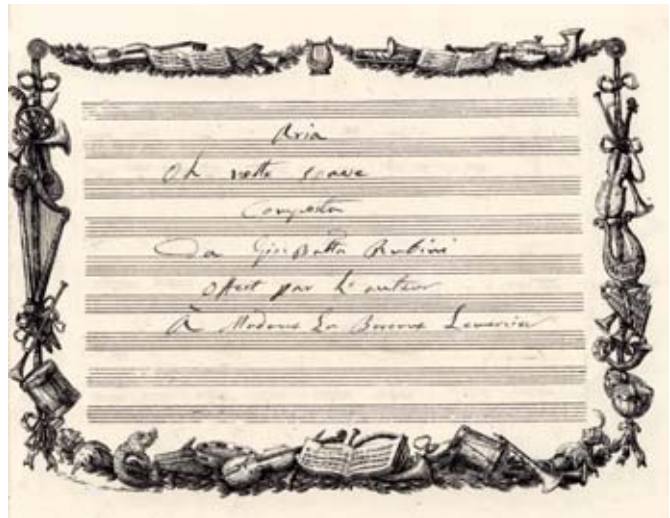 Aria
Oh notte soave
Composta
Da Gio: Batta Rubini
Offert par l'auteur
À Madame La Baronne Lemercier